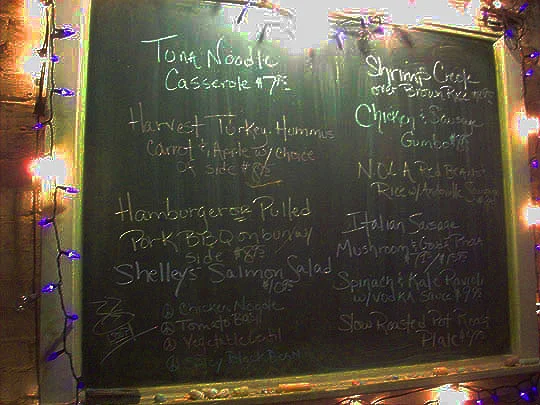 Tuna Noodle
Casserole $7.95
Harvest Turkey, Hummus
Carrot & Apple w/ choice
of side
Hamburger or Pulled
Pork BBQ on bun w/
side
Shelley's Salmon Salad
Chicken Noodle
Tomato Basil
Vegetable Lentil
Spicy Black Bean
Shrimp Creole
over Brown Rice
Chicken & Sausage
Gumbo
NOLA Red Beans &
Rice w/ Andouille Sausage
Italian Sausage
Mushroom &
Spinach & Kale Ravioli
w/ Vodka Sauce
Slow Roasted Pot Roast
Plate